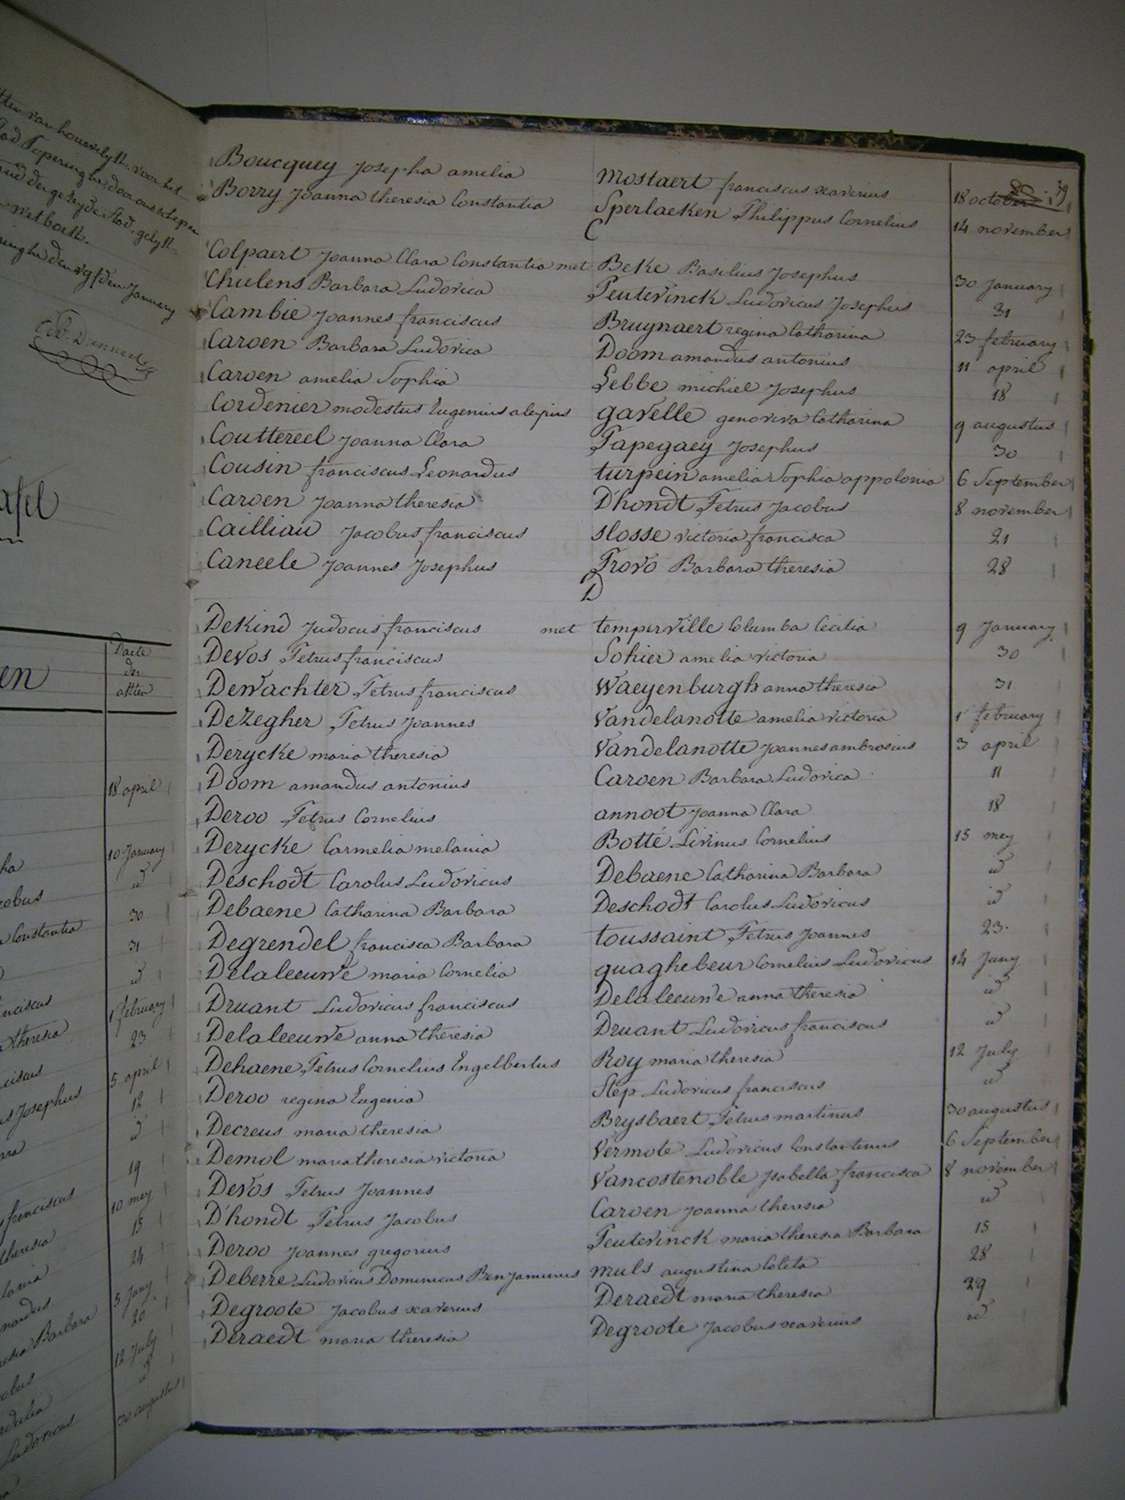 39
Boucquey Josepha amelia Mostaert franciscus xaverius 18 october
Borry Joanna theresia Constantia Sperlaeken Philippus Cornelius 14 november
C
Colpaert Joanna Clara Constantia met Beke Basilius Josephus 30 January
Chulens Barbara Ludovica Peutevinck Ludovicus Josephus 31
Cambie Joannes franciscus Bruynaert regina Catharina 23 february
Caroen Barbara Ludovica Doom amandus antonius 11 april
Caroen amelia Sophia Lebbe michiel Josephus 18
Cordenier modestus Eugenius alexius gavelle genoveva Catharina 9 augustus
Couttereel Joanna Clara Papegaey Josephus 30
Cousin franciscus Leonardus turpein amelia Sophia appolonia 6 September
Caroen Joanna theresia Dhondt Petrus Jacobus 8 november
Cailliau Jacobus franciscus slosse victoria francisca 21
Caneele Joannes Josephus Provo Barbara theresia 28
D
Dekind Judocus franciscus met temperville Columba Cecilia 9 January
Devos Petrus franciscus Sohier amelia victoria 30
Dewachter Petrus franciscus Waeyenburgh anna theresia 31
DeZegher Petrus Joannes Vandelanotte amelia victoria 1 february
Derycke maria theresia Vandelanotte Joannes ambrosius 3 april
Doom amandus antonius Caroen Barbara Ludovica 11
Deroo Petrus Cornelius annoot Joanna Clara 18
Derycke Carmelia melania Botté Livinus Cornelius 15 mey
Deschodt Carolus Ludovicus Debaene Catharina Barbara id
Debaene Catharina Barbara Deschodt Carolus Ludovicus id
Degrendel francisca Barbara toussaint Petrus Joannes 23
Delaleeuwe maria Cornelia quaghebeur Cornelius Ludovicus 14 Juny
Druant Ludovicus franciscus Delaleeuwe anna theresia id
Delaleeuwe anna theresia Druant Ludovicus franciscus id
Dehaene Petrus Cornelius Engelbertus Roy maria theresia 12 July
Deroo regina Eugenia Step Ludovicus franciscus id
Decreus maria theresia Brysbaert Petrus martinus 30 augustus
Demol maria theresia victoria Vermote Ludovicus Constantinus 6 September
Devos Petrus Joannes Vancostenoble Isabella francisca 8 november
D'hondt Petrus Jacobus Caroen Joanna theresia id
Deroo Joannes gregorius Peutevinck maria theresia Barbara 15
Deberre Ludovicus Dominicus Benjaminus muls augustina Coleta 28
Degroote Jacobus xaverius Deraedt maria theresia 29
Deraedt maria theresia Degroote Jacobus xaverius id
en
Date
der
akten
18 april
10 January
id
30
31
id
1 february
23
5 april
12
id
19
10 mey
15
24
5 Juny
20
12 July
id
30 augustus